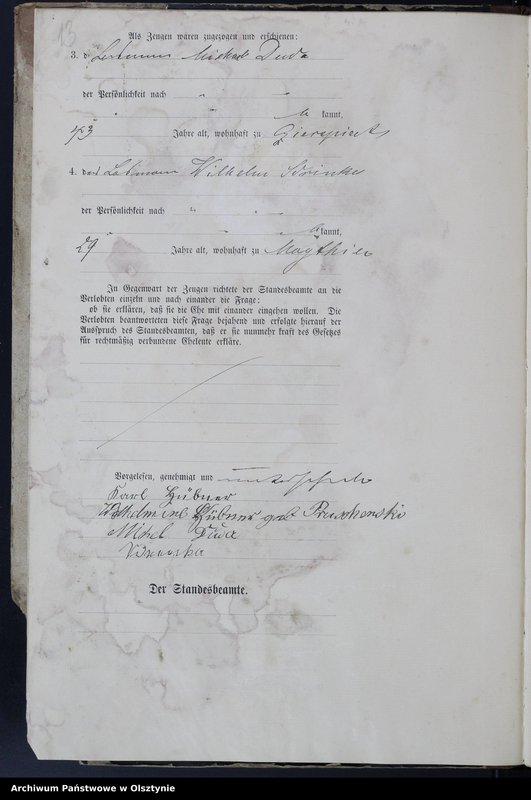 13
Als Zeugen waren zugezogen und erschienen:
3. d Michael Duda
der Persönlichkeit nach " "
" " " kannt,
73 Jahre alt, wohnhaft zu
4. der Losmann Wilhelm
der Persönlichkeit nach " " "
" " " kannt,
29 Jahre alt, wohnhaft zu
In Gegenwart der Zeugen richtete der Standesbeamte an die
Verlobten einzeln und nach einander die Frage:
ob sie erklären, daß sie die Ehe mit einander eingehen wollen. Die
Verlobten beantworteten diese Frage bejahend und erfolgte hierauf der
Ausspruch des Standesbeamten, daß er sie nunmehr kraft des Gesetzes
für rechtmäßig verbundene Eheleute erkläre.
Vorgelesen, genehmigt und unterschrieben
Karl Hübner
Wilhelmine Hübner geb
Michel Duda
Der Standesbeamte.
Archiwum Państwowe w Olsztynie